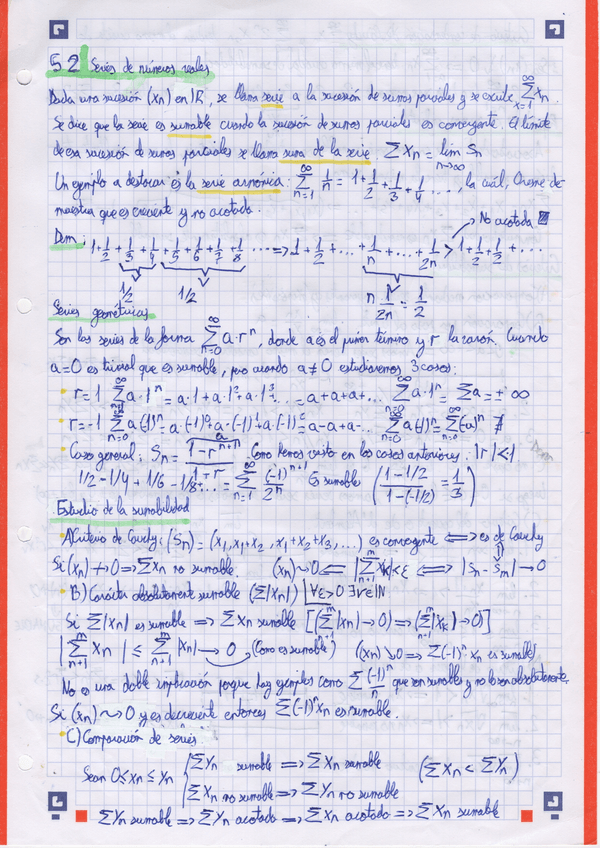 5.2 Series de números reales
Dada una sucesión (xn) en IR, se llama serie a la sucesión de sumas parciales y se escribe ∞ Σ x=1 xn.
Se dice que la serie es sumable cuando la sucesión de sumas parciales es convergente. El límite
de esa sucesión de sumas parciales se llama suma de la serie. Σ Xn = lim n→∞ Sn
Un ejemplo a destacar es la serie armónica: ∞ Σ n=1 1/n = 1 + 1/2 + 1/3 + 1/4 ..., la cuál, Oresme de-
muestra que es creciente y no acotada.
No acotada
Dem: 1 + 1/2 + 1/3 + 1/4 + 1/5 + 1/6 + 1/7 + 1/8 ... => 1 + 1/2 + ... + 1/n + ... + 1/2n > 1 + 1/2 + 1/2 + ...
1/2 1/2 n 1/2n = 1/2
Series geométricas
Son las series de la forma ∞ Σ n=0 a·r^n, donde a es el primer término y r la razón. Cuando
a=0 es trivial que es sumable, pero cuando a≠0 estudiaremos 3 casos:
· r=1 ∞ Σ a·1^n = a·1 + a·1^2 + a·1^3 ... = a+a+a+... ∞ Σ n=0 a·1^n = Σa = ± ∞
· r=-1 ∞ Σ n=0 a(-1)^n = a·(-1)^0 + a·(-1)^1 + a(-1)^2 = a-a+a-... ∞ Σ n=0 a(-1)^n = ∞ Σ n=0 (-a)^n ∄
· Caso general: Sn = . Como hemos visto en los casos anteriores: |r|<1
1/2 - 1/4 + 1/6 - 1/8 ... = ∞ Σ n=1 (-1)^n+1 / 2^n Es sumable ( 1-1/2 / 1-(-1/2) = 1/3 )
Estudio de la sumabilidad
· A) Criterio de Cauchy: (Sn) = (x1, x1+x2, x1+x2+x3, ...) es convergente <=> es de Cauchy
Si (xn) ↛ 0 => Σxn no sumable (xn) ~> 0 <= |m Σ n+1 xk| < ε <=> |Sn - Sm| → 0
· B) Carácter absolutamente sumable (Σ|xn|) | ∀ε>0 ∃ν∈IN
Si Σ|xn| es sumable => Σ xn sumable [(m Σ n+1 |xn| → 0) => (m Σ n+1 |xk| → 0)]
|m Σ n+1 xn| ≤ m Σ n+1 |xn| → 0 (como es sumable) (xn) ↘ 0 => Σ(-1)^n xn es sumable)
No es una doble implicación porque hay ejemplos como Σ (-1)^n / n que son sumables y no lo son absolutamente.
Si (xn) ~> 0 y es decreciente entonces Σ(-1)^n xn es sumable.
· C) Comparación de series
Sean 0 ≤ xn ≤ yn { Σ Yn sumable => Σ Xn sumable (Σ Xn < Σ Yn)
Σ Xn no sumable => Σ Yn no sumable
Σ Yn sumable => Σ Yn acotado => Σ Xn acotado => Σ Xn sumable